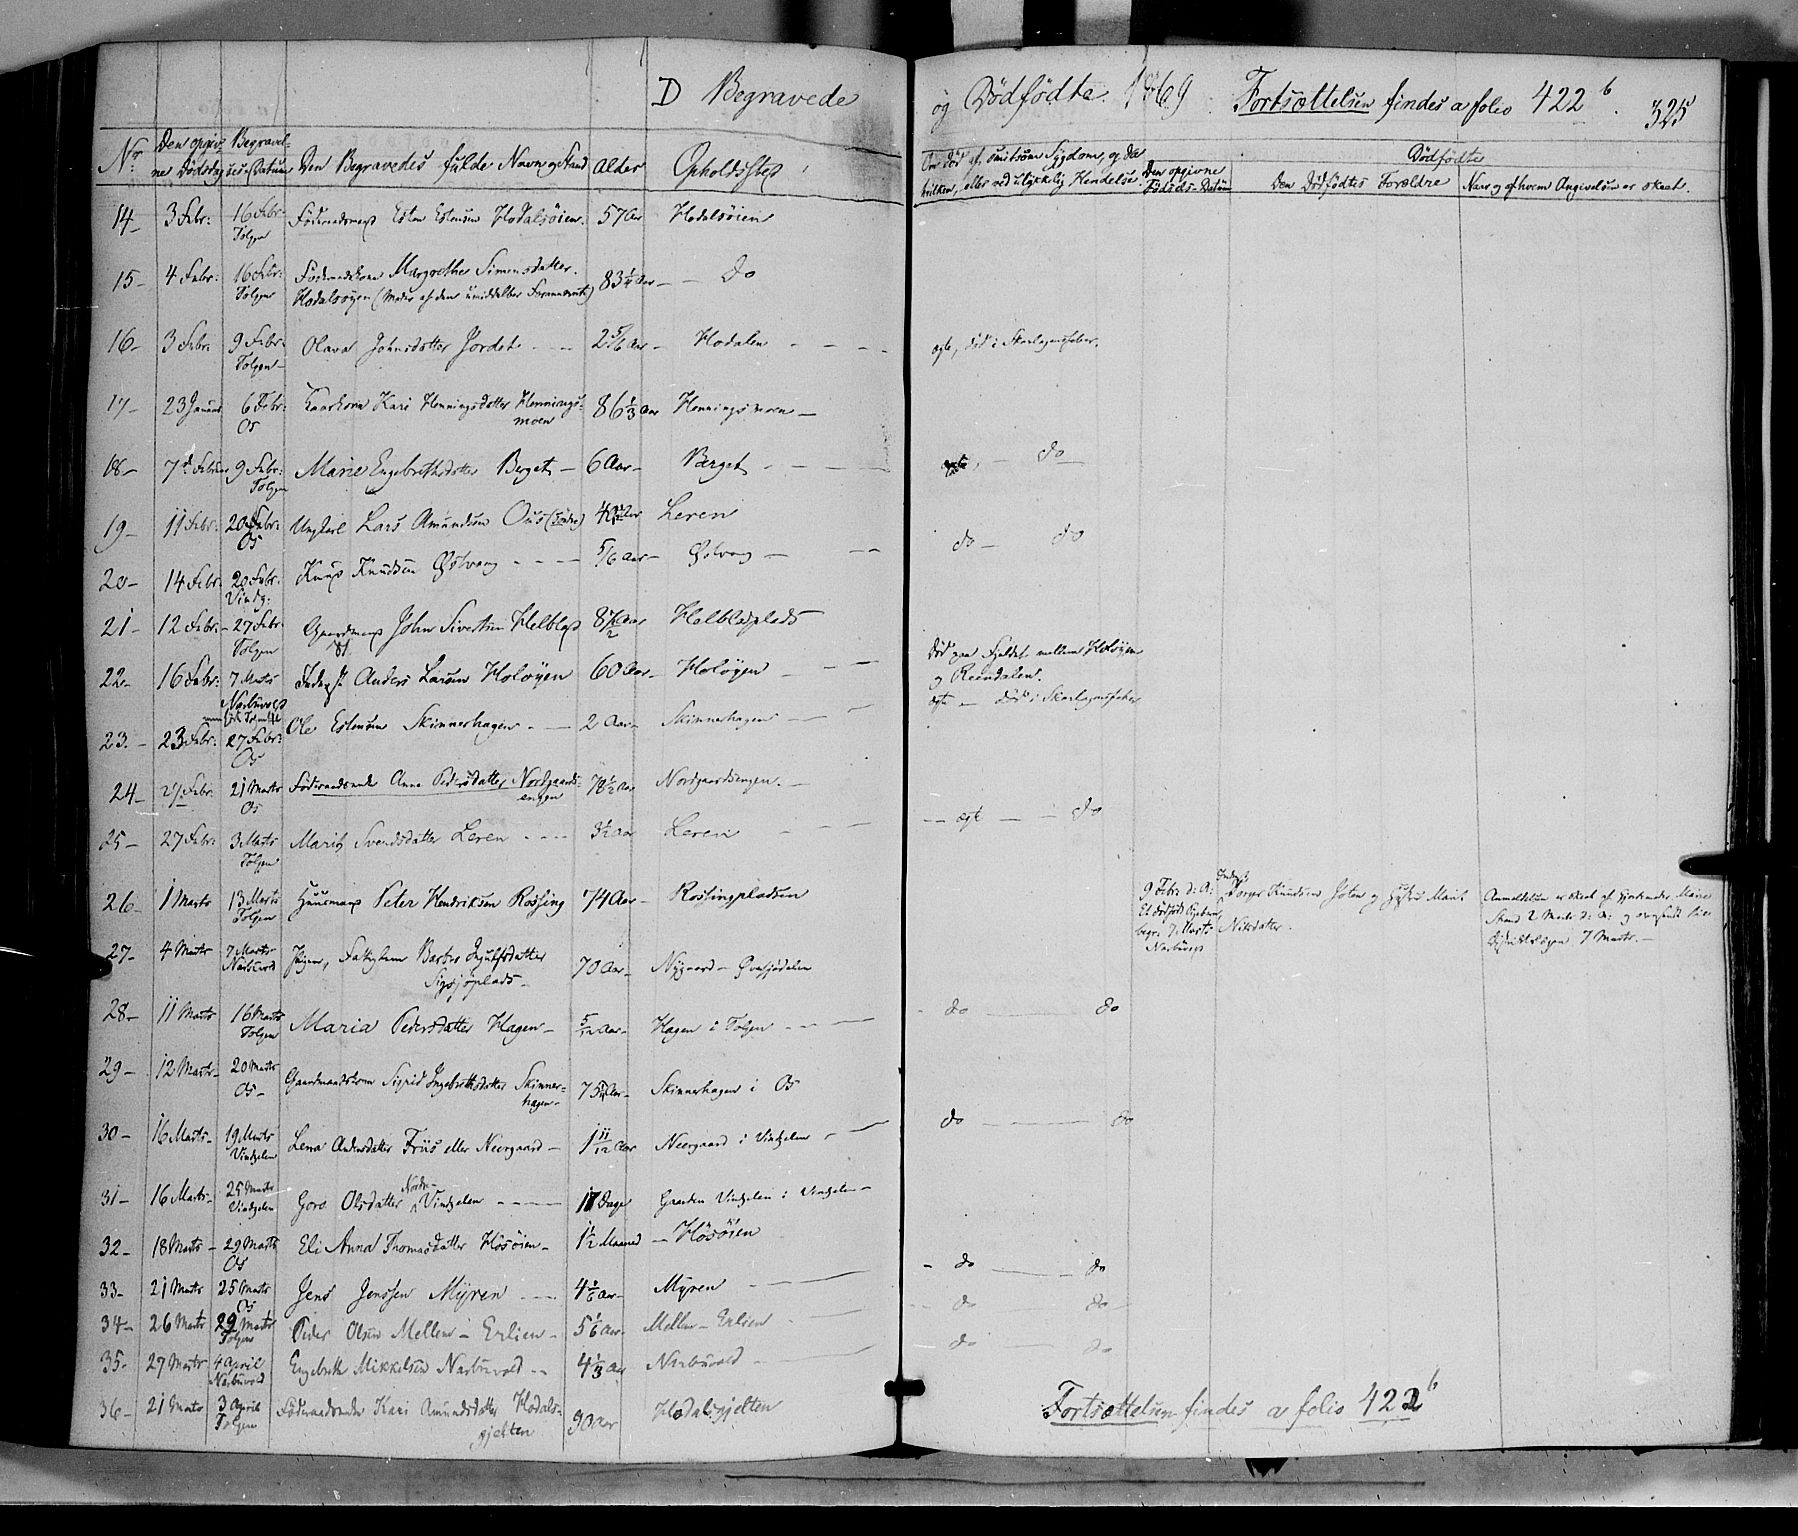 D Begravede og Dödfödte. 1869 Fortsættelsen findes a folio 422 b. 325
Nr. Den opgivne Dödsdag Begravelses-Datum Den Begravedes fulde Navn og Stand Alder Opholdssted
Om död af smitsom Sygdom, og da hvilken, eller ved ulykkelig Hendelse. Den opgivne Födsels-Datum Dödfödte
Den Dödfödtes Forældre Naar og af hvem Angivelsen er skeet.
14- 3 Febr: 16 Febr: Tolgen Föderaadsmand Esten Estensen Hodalsöien. 57 Aar Hodalsöien
15- 4 Febr: 16 Febr: Tolgen Föderaadskone Margrethe Simensdatter. 83 1/4 Aar - - Do
Hodalsöyen (Moder af den umiddelbar Forannævnte)
16- 3 Febr: 9 Febr: Tolgen- Olava Johnsdatter Jordet - - 2 5/6 Aar - Hodalen - - - ægte, död i Skarlagensfeber.
17- 23 Januar 6 Febr: Os Kaarkone Kari Henningsdatter Henningsmoen 86 1/3 Aar Henningsmoen -
18- 7d Februar 9 Febr: Tolgen Marie Engebrethsdatter Berget - 6 Aar - Berget - - - ægte, - do -
19- 11 Febr: 20 Febr: Os Ungkarl Lars Amundsen Ous (Söndre) Leren
20- 14 Febr: 20 Febr: Vindg: Knud Knudsen Östvang - - - - 5/6 Aar - Östvang - - - do - do
21- 12 Febr: - 27 Febr: Tolgen Gaardmand John Sivertsen Helblad Helbladplads
22- 16 Febr: 7 Marts Narbuvold Anders Larsen Holöyen 60 Aar - Holöyen - - - Död paa Fjeldet mellem Holöyen
og Reendalen.
23.- 23 Febr: 27 Febr: Os Ole Estensen Skinnerhagen - - 2 Aar - Skinnerhagen - - - ægte - död i Skarlagensfeber
24- 21 Marts Os Föderaadsenke Anne Pedersdatter Nordgaardsengen 78 1/2 Aar Nordgaardsengen. -
25- 27 Febr: 3 Marts Tolgen Marit Svendsdatter Leren - - - - 3 1/2 Aar Leren - - - - - ægte - - do
26- 1 Marts 13 Marts Tolgen Huusmand Peter Hendriksen Rossing 74 Aar - Rossingpladsen
9 Febr. d: A: Et dödföd begr: 7 Marts Narbuvold
Knudsen Joten og Hustru Marit Nilsdatter.
Anmeldelsen er skeet af Gjordemoder Marie
2 Marts d: A: og
7 Marts. -
27- 4 Marts 7 Marts Narbuvold 70 Aar - Nygaard - Övrsjödalen
28- 11 Marts 16 Marts Tolgen Maria Pedersdatter Hagen - 5/12 Aar - Hagen i Tolgen - - - do - do
29- 12 Marts - 20 Marts Os- Gaardmandskone Sigrid Ingebrethsdatter Skinnerhagen - Skinnerhagen i Os
30- 16 Marts - 19 Marts Vindgelen Lena Andersdatter Friis eller Neergaard - 1 11/12 Aar Neergaard i Vindgelen - - do - do
31- 16 Marts - 25 Marts Vindgelen Goro Olsdatter Nordre Vindgelen - - - - 17 Dage Gaarden Vindgelen i Vindgelen -
32- 18 Marts - 29 Marts Os Eli Anna Thomasdatter Hösöien - 1 1/2 Maaned - Hösöien - do - do
33- 21 Marts 25 Marts Os Jens Jenssen Myren - - Myren - - - do - do
34- 26 Marts 29 Marts Tolgen Peder Olsen Mellem-Erlien - 5 1/6 Aar - Mellem-Erlien - - do - do
35- 27 Marts 4 April Narbuvold Engebreth Mikkelsen Narbuvold - - 4 1/3 Aar Narbuvold -
36- 21 Marts 3 April Tolgen Föderaadsenke Kari Amundsdatter Hodalsgjelten 90 Aar Hodalsgjelten
Fortsættelsen findes a folio 422 b